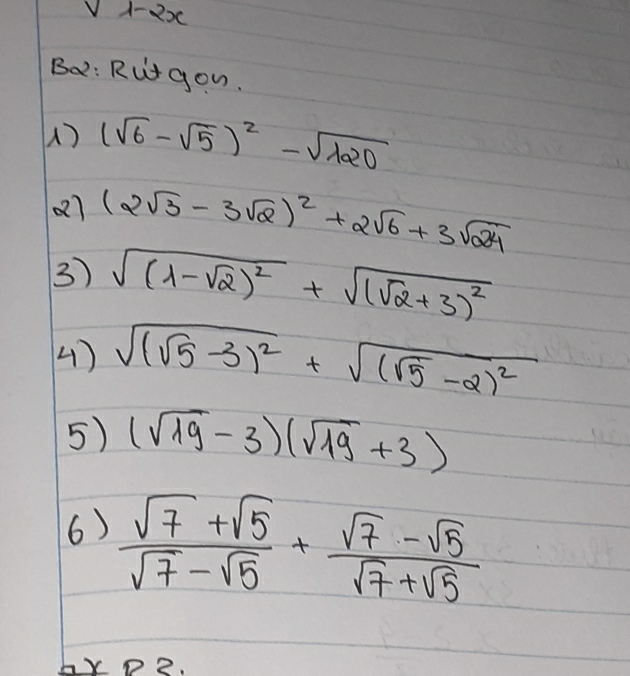 √1-2x
B2: Rút gọn.
1) (√6 - √5)² - √120
2) (2√3 - 3√2)² + 2√6 + 3√24
3) √(1-√2)² + √(√2+3)²
4) √(√5-3)² + √(√5-2)²
5) (√19 - 3)(√19 + 3)
6) (√7+√5)/(√7-√5) + (√7-√5)/(√7+√5)